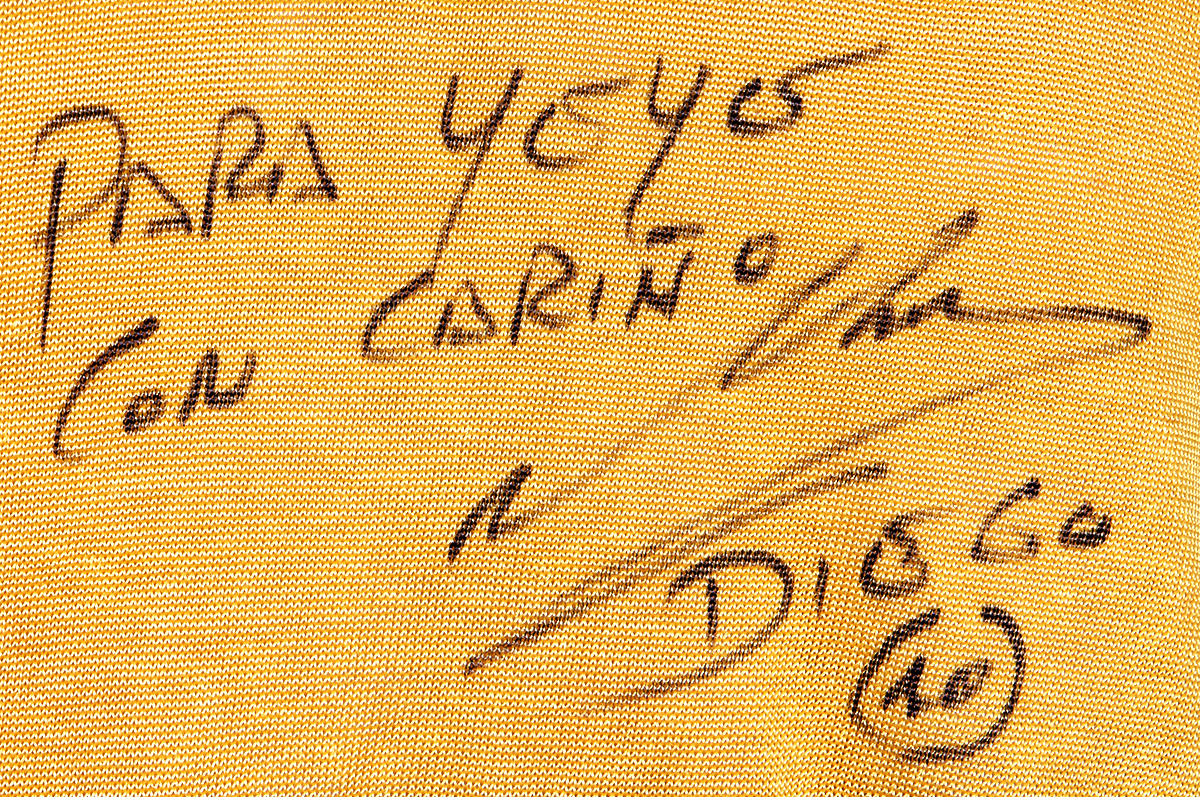 PARA YEYO
CON CARIÑO
DIEGO
(10)